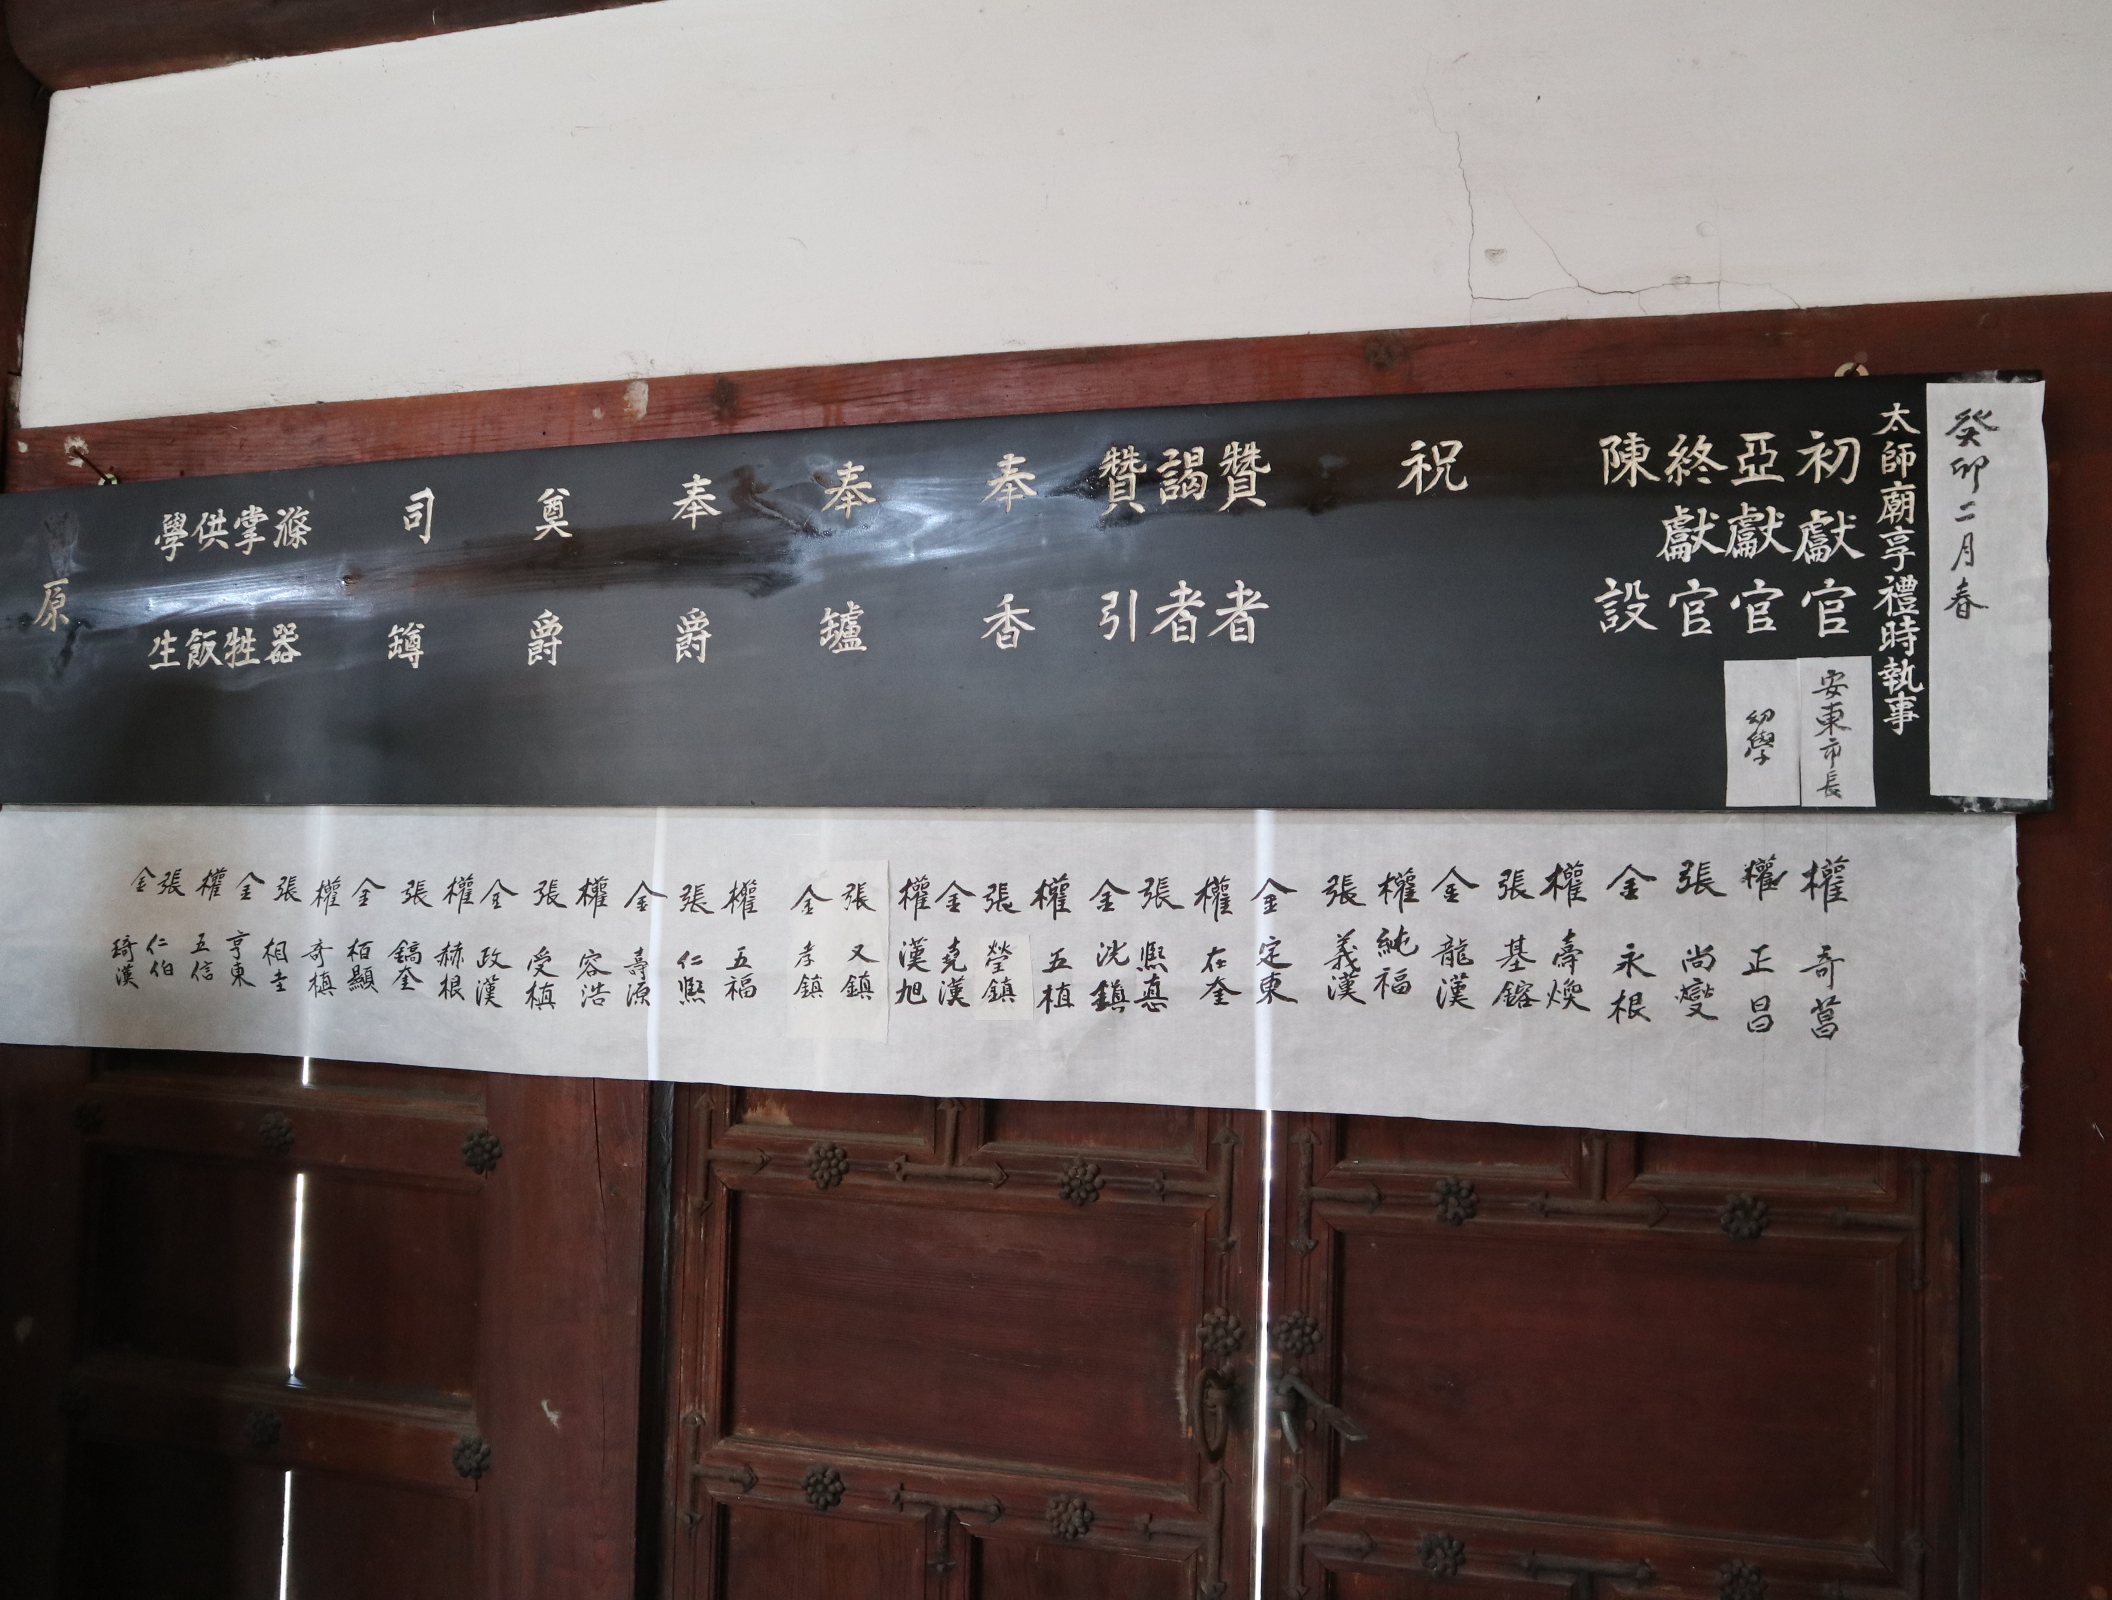 癸卯二月春
太師廟享禮時執事
初獻官
安東市長
亞獻官
幼學
終獻官
陳設
祝
贊者
謁者
贊引
奉香
奉鑪
奉爵
奠爵
司罇
滌器
掌牲
供飯
學生
原
權奇菖
權正昌
張尚燮
金永根
權壽煥
張基鎔
金龍漢
權純福
張義漢
金定東
權在奎
張熙悳
金洸鎮
權五植
張瑩鎮
金堯漢
權漢旭
張又鎮
金孝鎮
權五福
張仁熙
金壽源
權容浩
張受植
金政漢
權赫根
張鎬奎
金栢顯
權奇槙
張相圭
金亨東
權五信
張仁伯
金琦漢